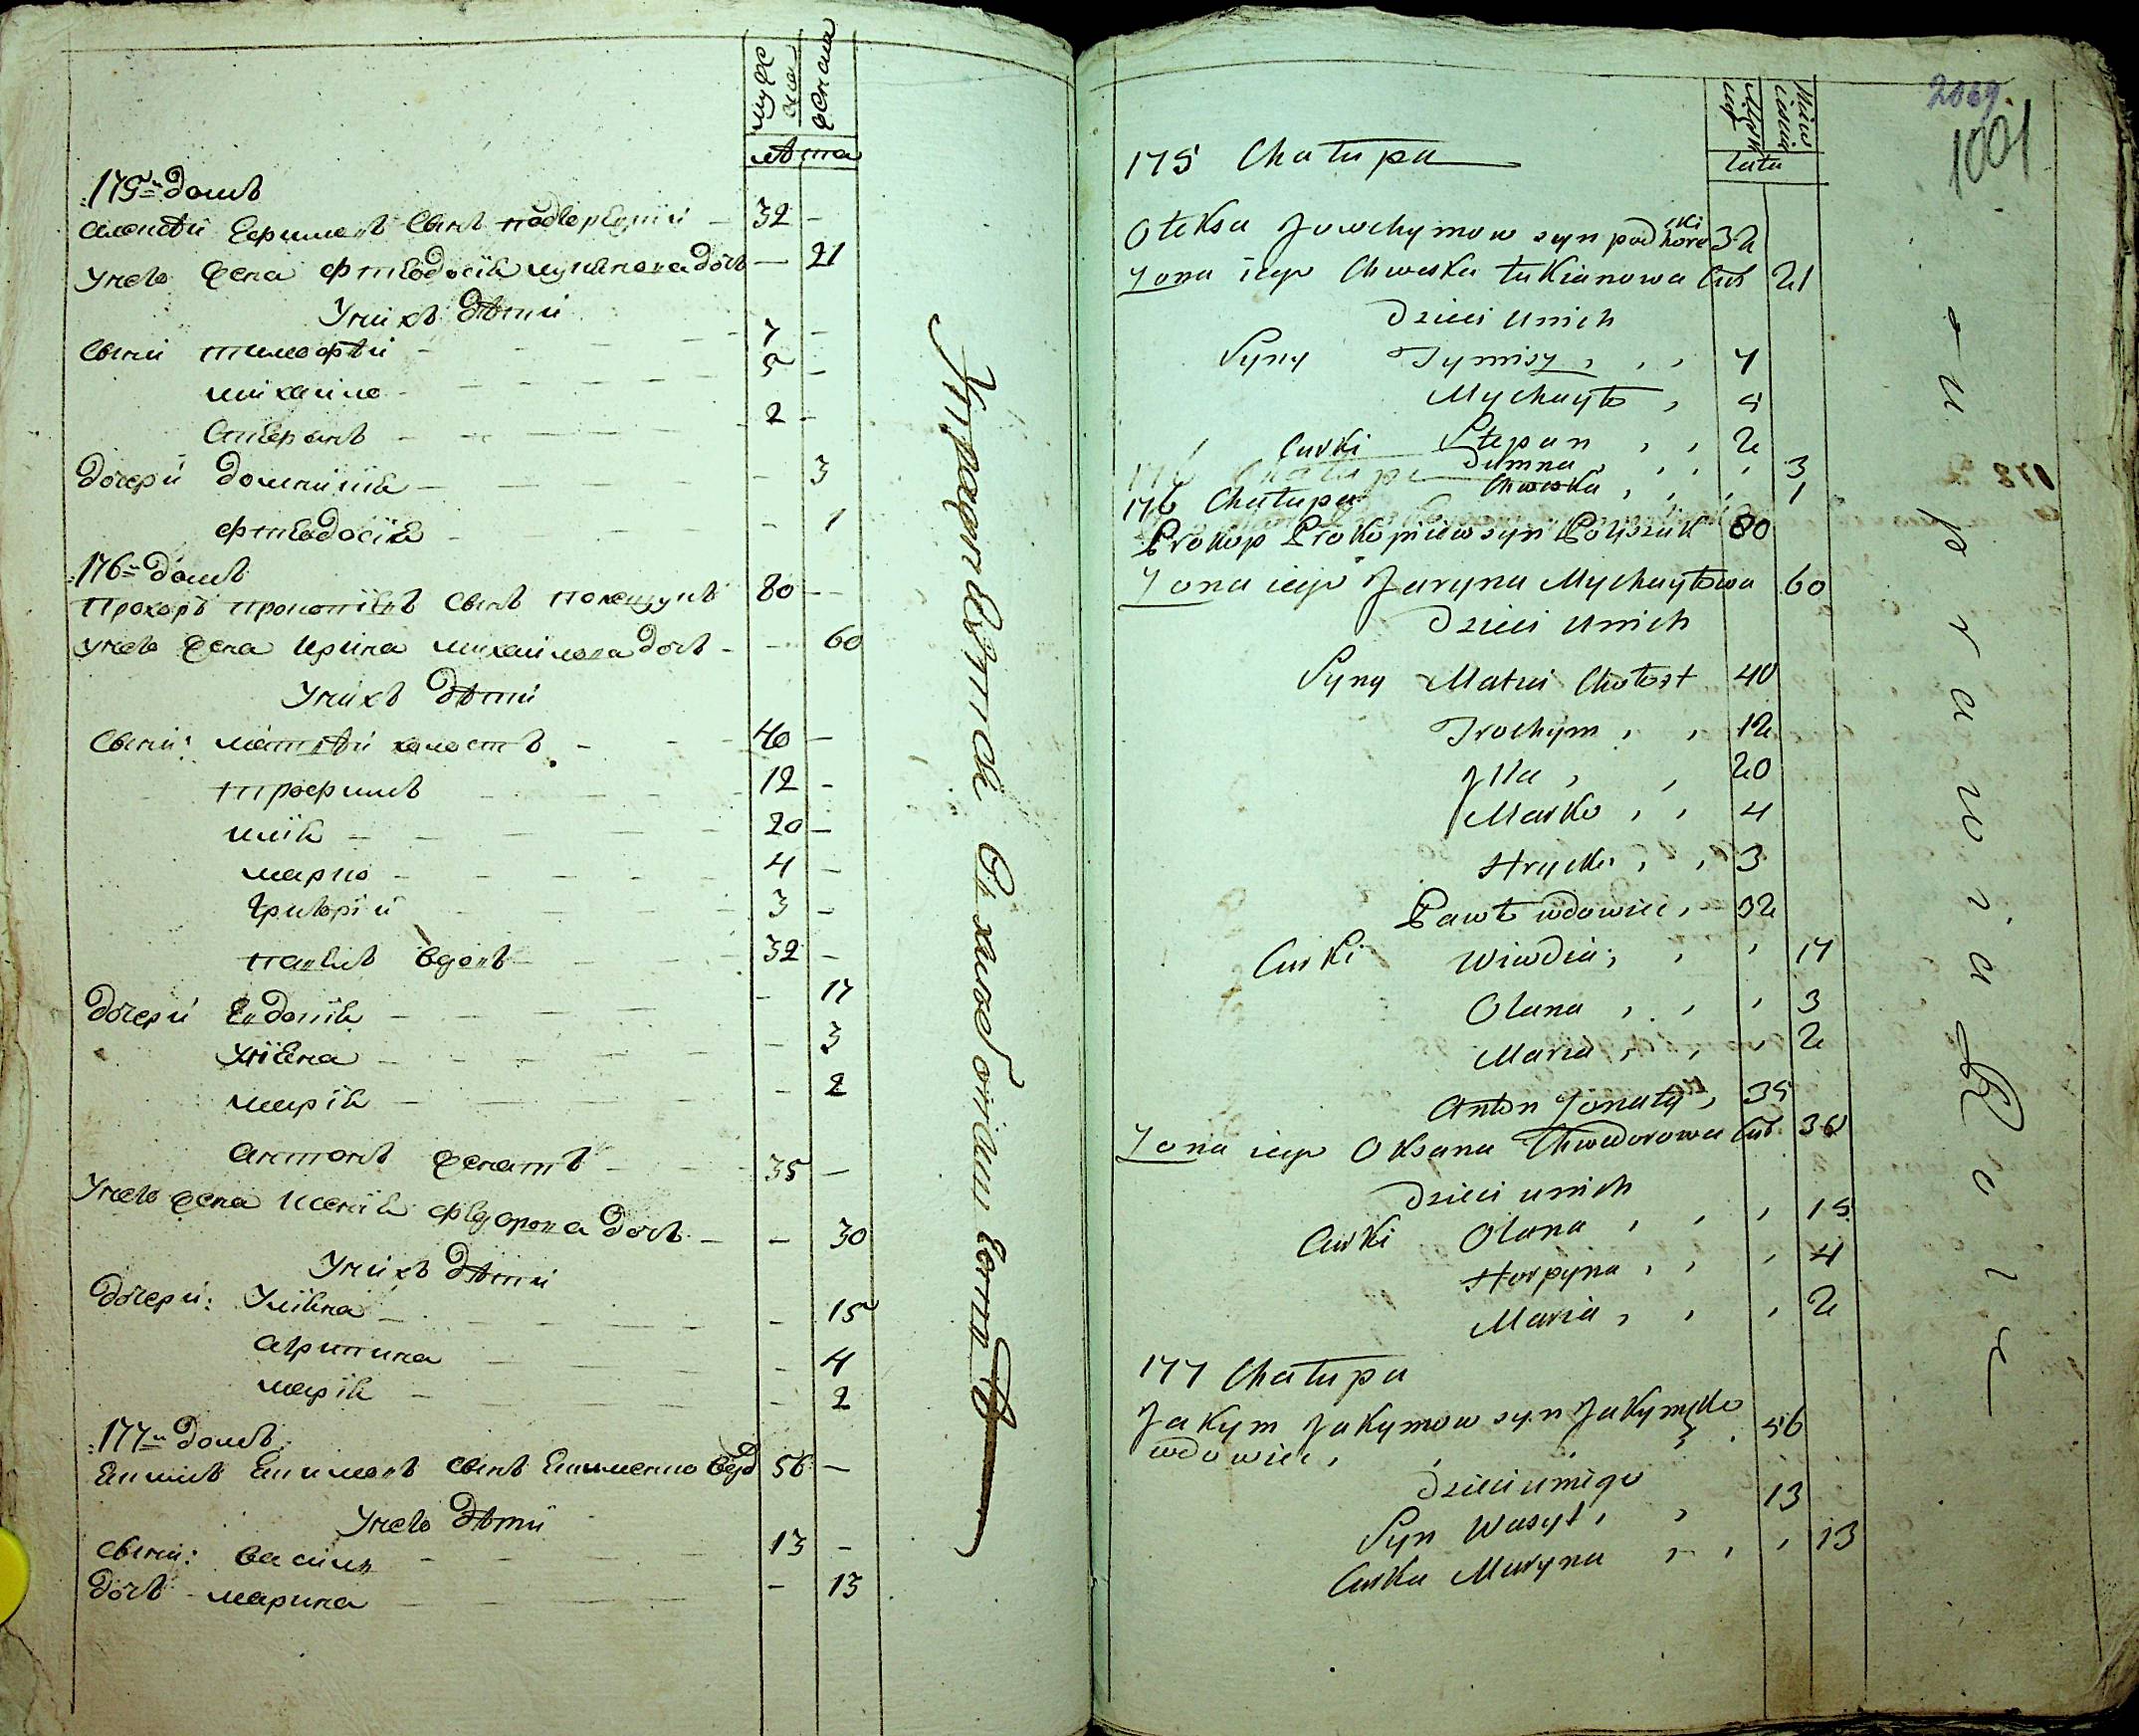 мужеска
женска
лѣта
175й домъ
Алексѣй Ефимовъ сынъ подгорецкій — 32 —
У него жена Феѳодосія лукянова дочь — 21
У нихъ дѣти
Сыни тимофѣй 7 —
михаило 5 —
Стефанъ 2 —
дочери домникія — 3
феѳодосія — 1
176й домъ
Прохоръ прокопіевъ сынъ полещукъ 80 —
у него жена ирина михаилова дочь — 60
У нихъ дѣти
Сыни: матѳѣй холостъ 40 —
трофимъ 12 —
илія 20 —
марко 4 —
григорій 3 —
павелъ вдовъ 32 —
дочери Евдокія — 17
Уліяна — 3
марія — 2
антонъ женатъ 35 —
У него жена ксенія федорова дочь — 30
У нихъ дѣти
дочери: Уліяна — 15
агрипина — 4
марія — 2
177й домъ
Екимъ Екимовъ сынъ Екименко вдо 56 —
У него дѣти
сыни: василь 13 —
дочь марина — 13
Упражняется въ хлебопашестве
2069.
1001
Lata
175 Chałupa
Ołeksa Jowchymow syn podhorecki 32
Żona iego Chweska łukianowa Curk 21
Dzieci u nich
Syny Tymisz , , , 7
Mychayło , 5
Stepan , , 2
Curki Dumna , , , , 3
Chweska , , , 1
176 Chałupa
Prokop Prokopiiew syn Poliszuk 80
Żona iego Jaryna Mychayłowa 60
Dzieci u nich
Syny Matwi Chołost 40
Trochym , , 12
Illa , , 20
Marko , , 4
Hrycko , , 3
Pawło wdowiec , 32
Curki Wiwdia , , , 17
Olana , , , 3
Maria , , , 2
Anton Żonaty , 35
Żona iego Oksana Chwedorowa Cur 30
Dzieci u nich
Curki Olana , , , 15
Horpyna , , , 4
Maria , , , 2
177 Chałupa
Jakym Jakymow syn Jakymko 56
wdowiec ,
Dzieci u niego
Syn Wasyl , , 13
Curka Maryna , , , 13
uprawia Role